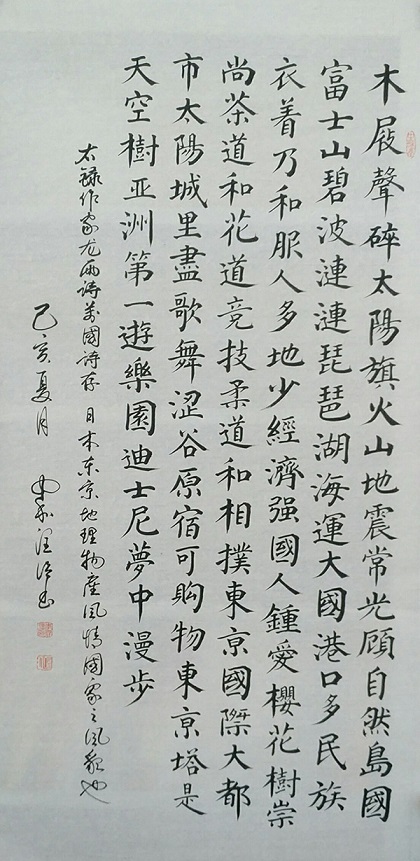 木屐聲碎太陽旗火山地震常光顧自然島國
富士山碧波漣漣琵琶湖海運大國港口多民族
衣着乃和服人多地少經濟强國人鍾愛櫻花樹崇
尚茶道和花道竞技柔道和相撲東京國際大都
市太陽城里盡歌舞澀谷原宿可购物東京塔是
天空樹亚洲第一遊樂園迪士尼夢中漫步
太録作家龙雨诗萬國詩存 日本东京地理物産風情國家之風貌也
己亥夏月